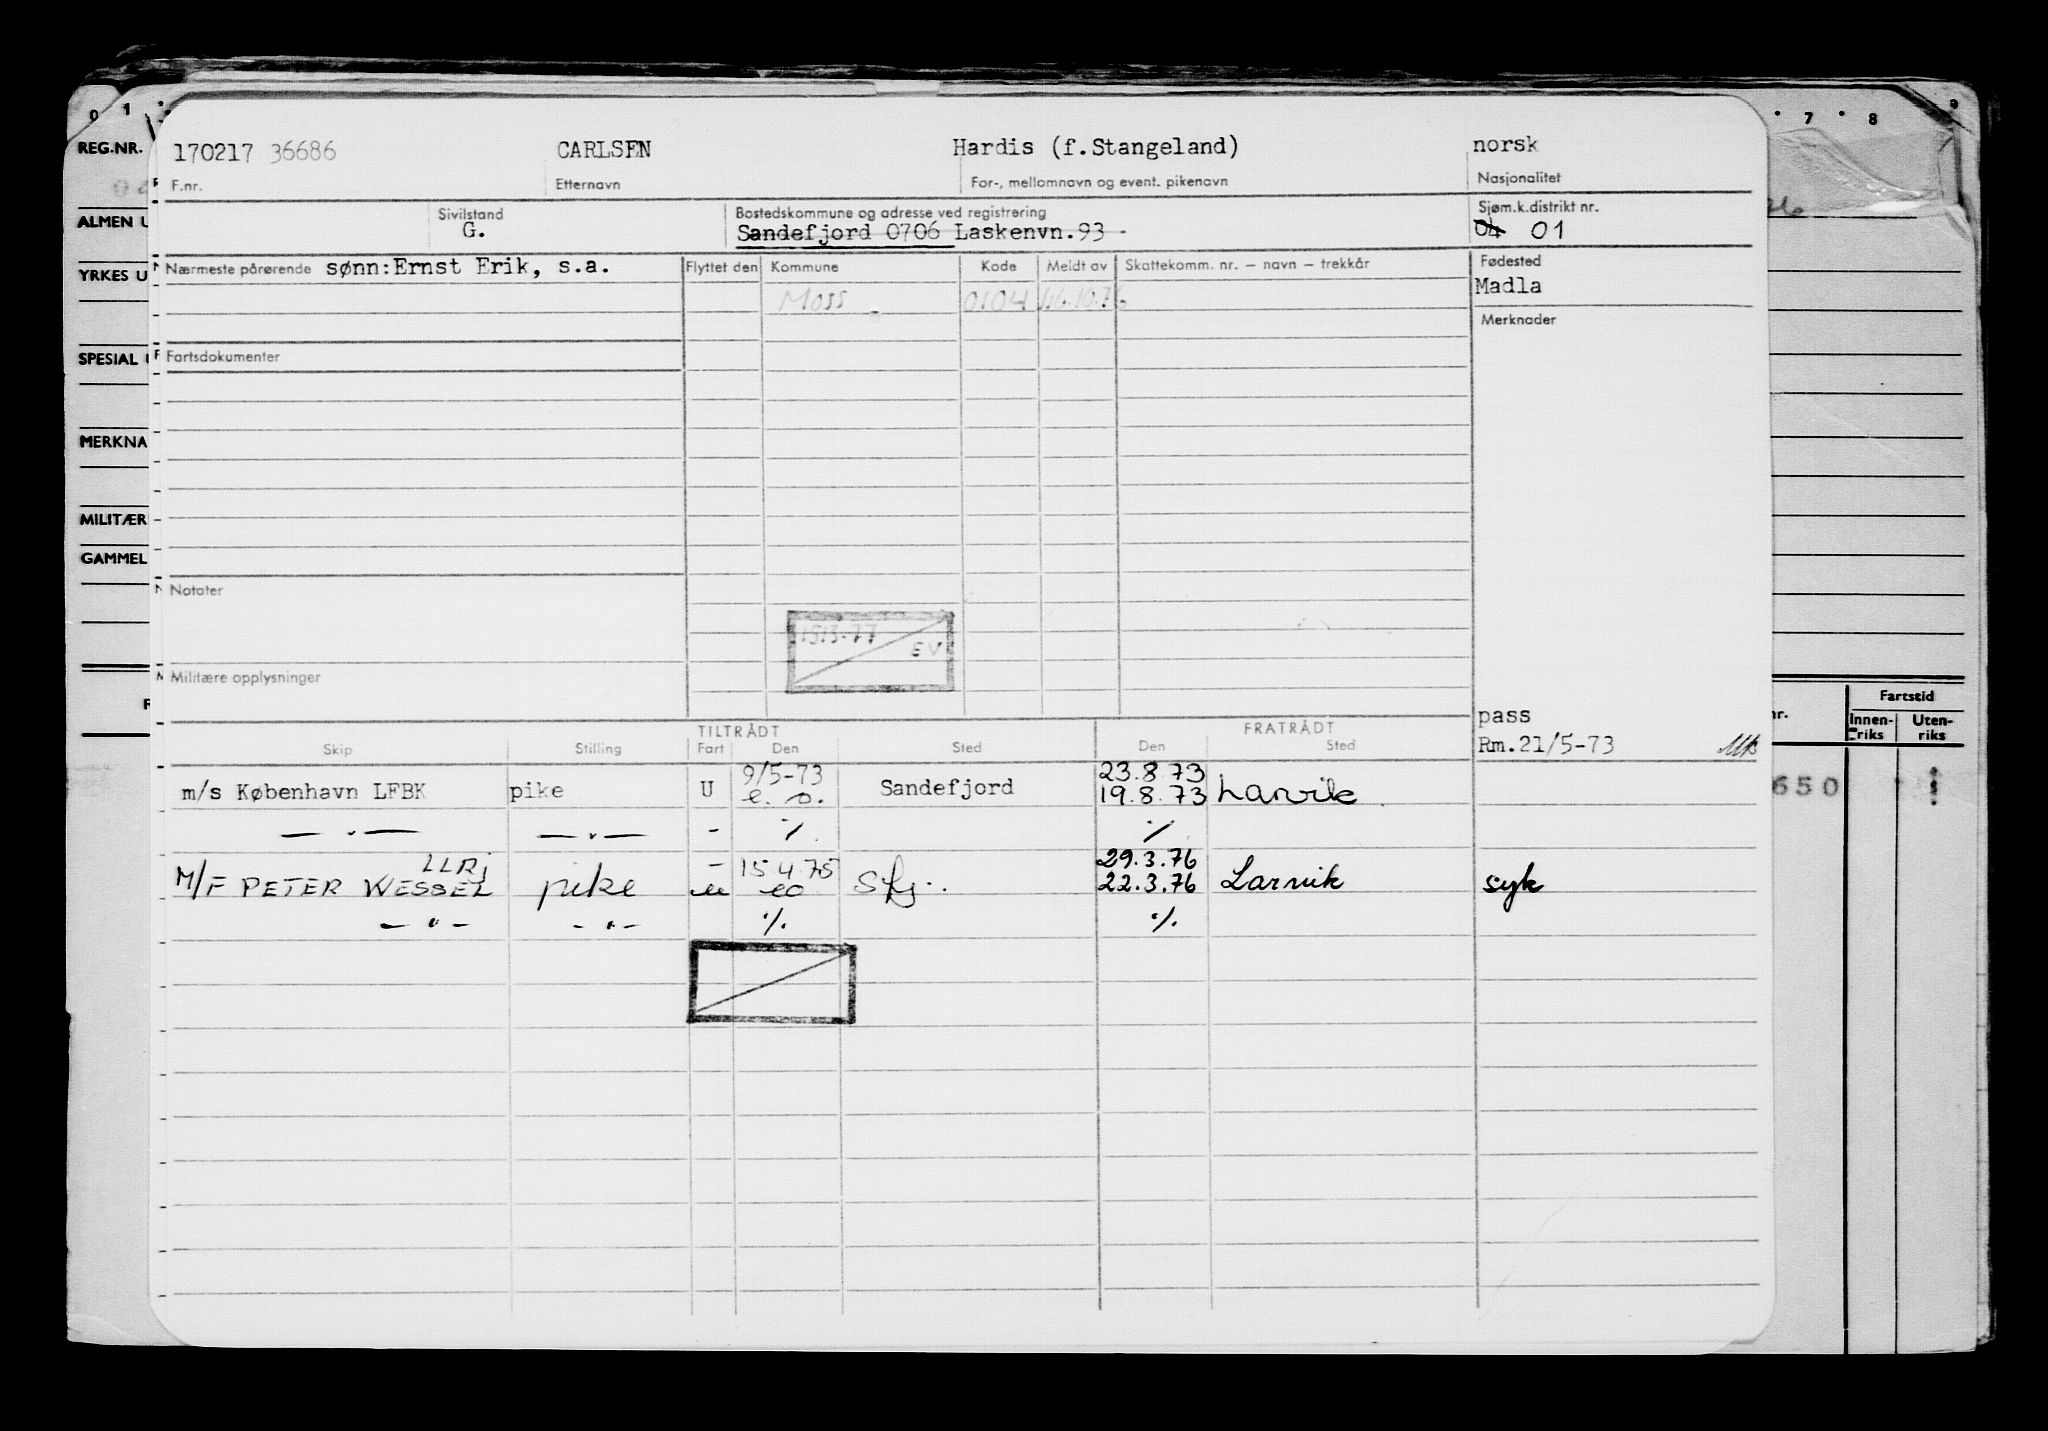 0 1 7 8 9
REG.NR. 170217 36686 CARLSEN Hardis (f.Stangeland) norsk
F.nr. Etternavn For-, mellomnavn og event. pikenavn Nasjonalitet
ALMEN U Sivilstand Bostedskommune og adresse ved registrering Sjøm.k.distrikt nr.
G. Sandefjord 0706 Laskenvn.93 04 01
YRKES U Nærmeste pårørende sønn:Ernst Erik, s.a. Flyttet den Kommune Kode Meldt av Skattekomm. nr. – navn – trekkår Fødested
Madla
Moss 0104 16.10.76
Merknader
SPESIAL Fartsdokumenter
MERKNA
MILITÆR
GAMMEL
Notater
1513-77
EV
Militære opplysninger
Fartstid
Innen-riks Uten-riks
pass
TILTRÅDT FRATRÅDT
Skip Stilling Fart Den Sted Den Sted Rm.21/5-73 MK
m/s København LFBK pike U 9/5-73 e.o. Sandefjord 23.8.73 19.8.73 Larvik 650
— " — — " — - ./. ./.
LLRJ
M/F PETER WESSEL pike - u 15.4.75 eo Sfj.. 29.3.76 22.3.76 Larvik syk
— " — - " - ./. ./.